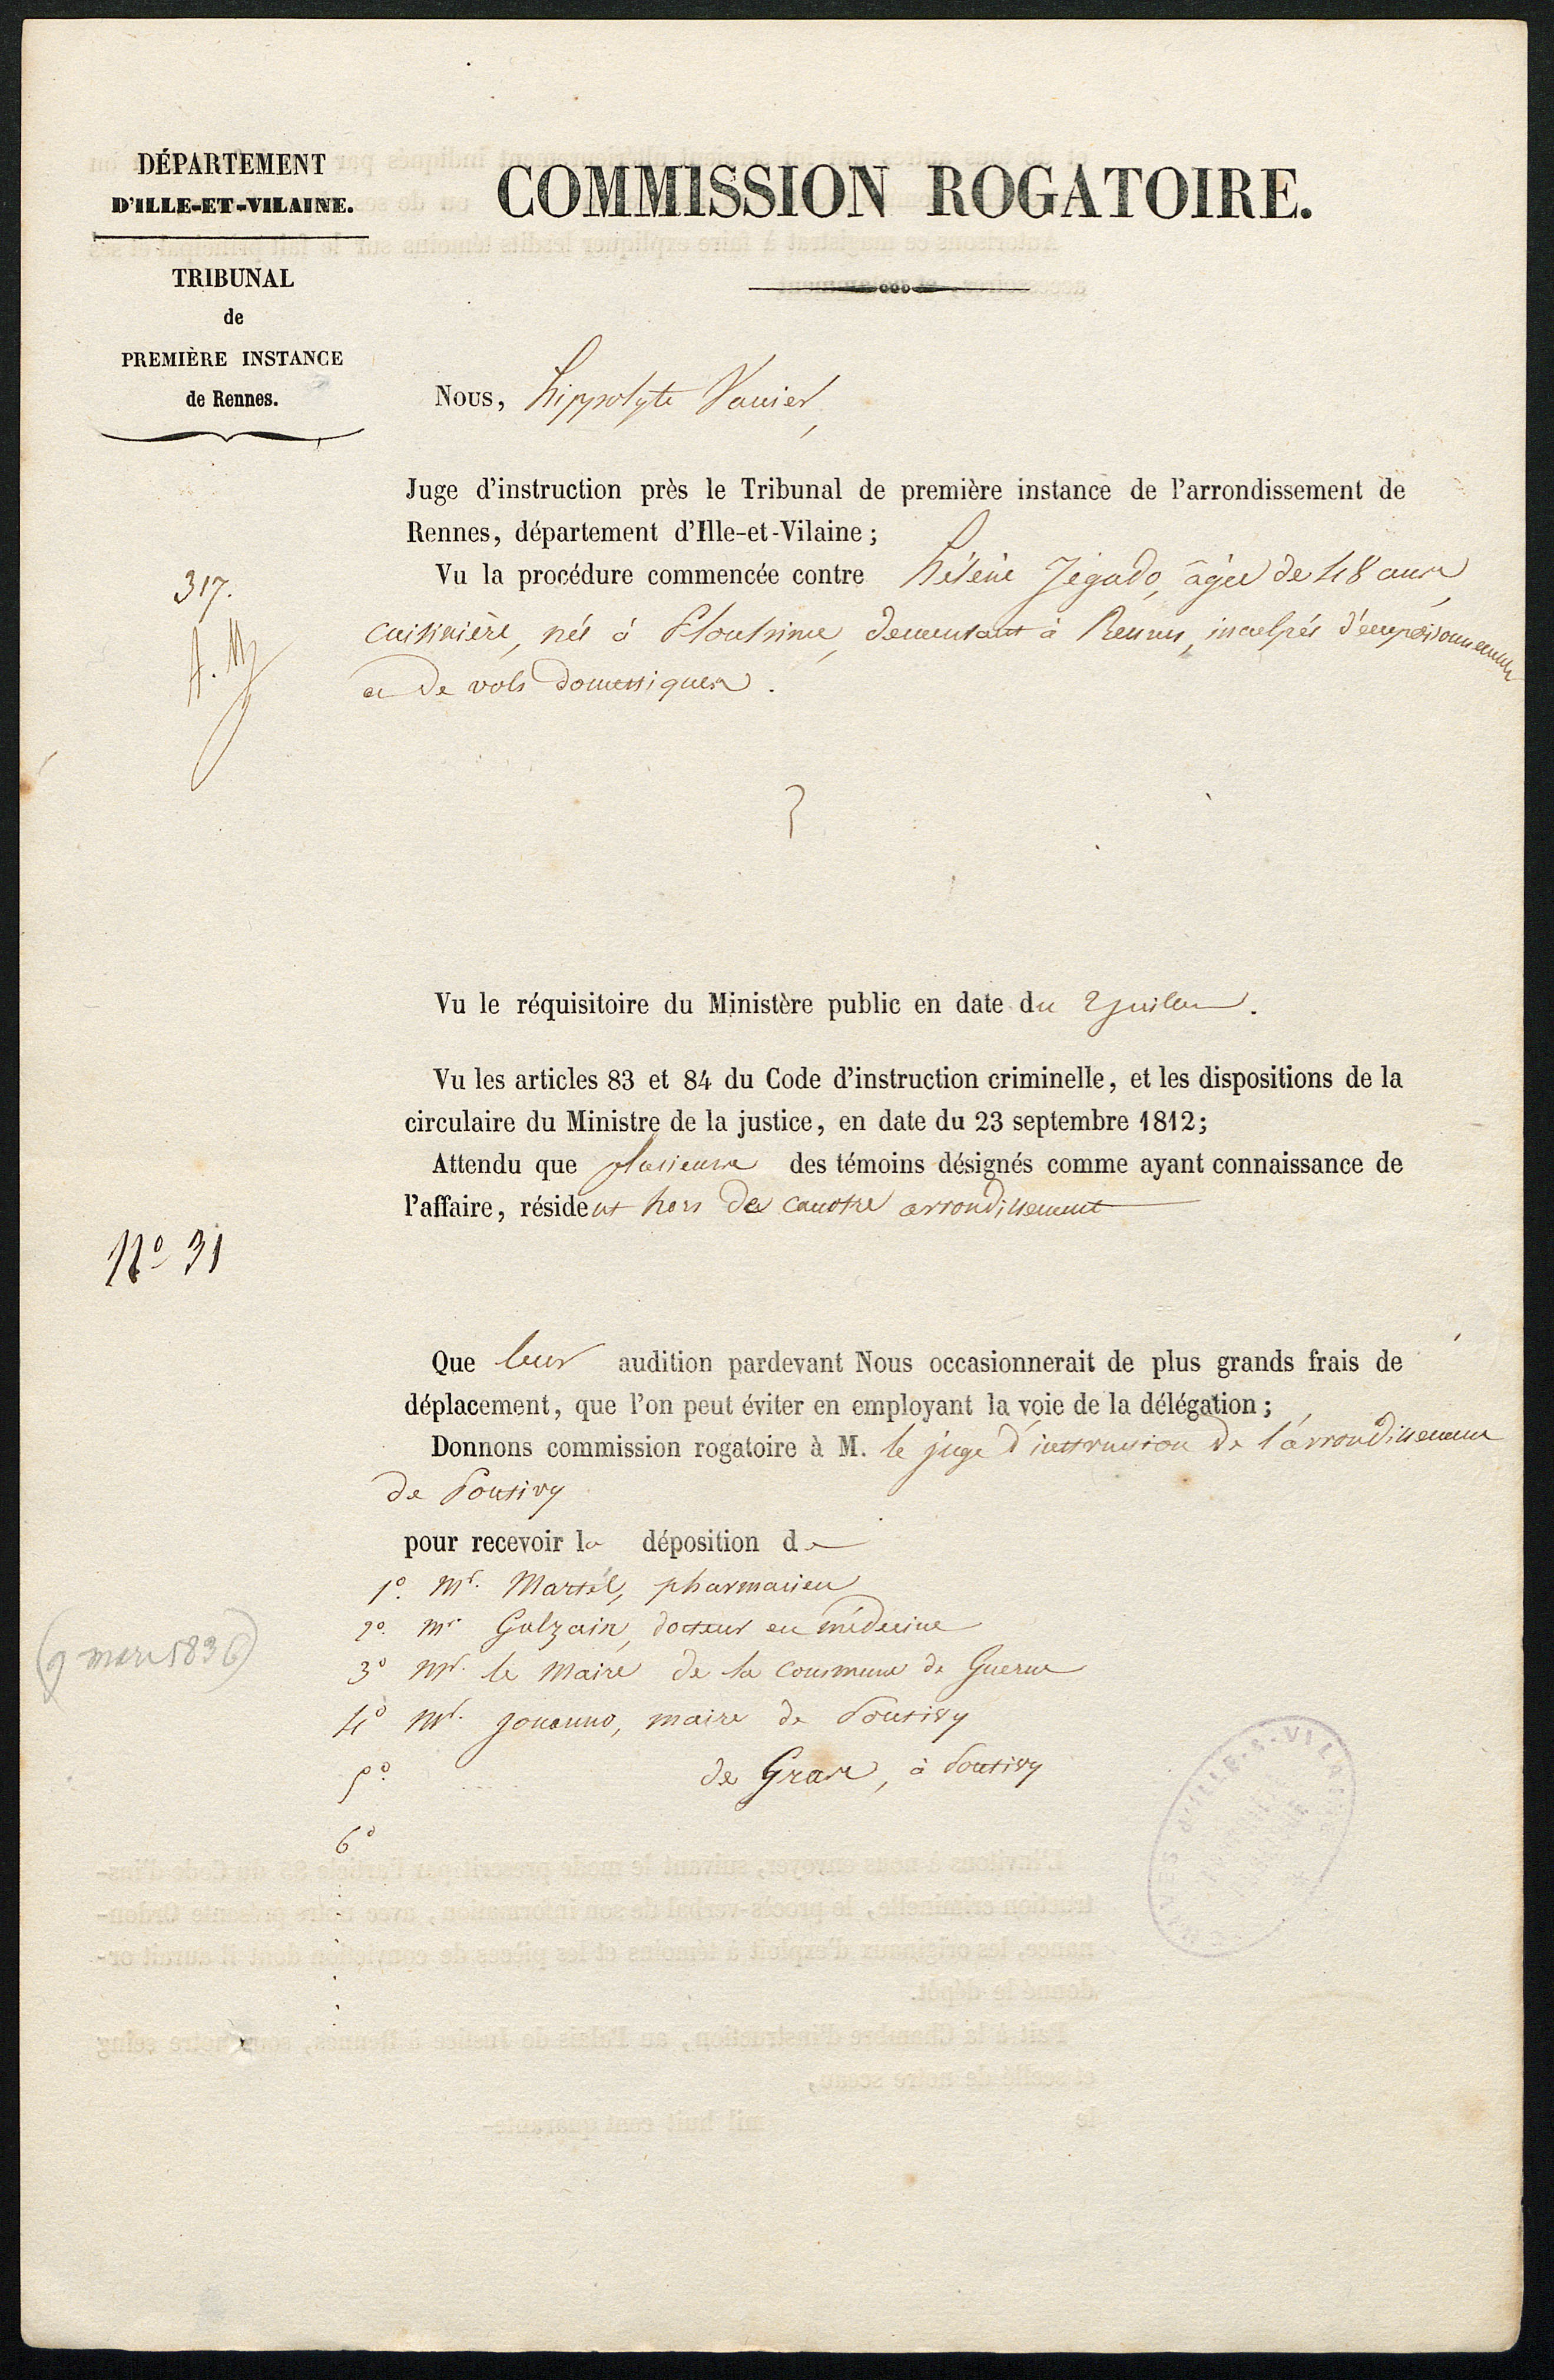 DÉPARTEMENT
D'ILLE-ET-VILAINE.
TRIBUNAL
de
PREMIÈRE INSTANCE
de Rennes.
COMMISSION ROGATOIRE.
Nous, hippolyte Vannier,
Juge d'instruction près le Tribunal de première instance de l'arrondissement de
Rennes, département d'Ille-et-Vilaine;
Vu la procédure commencée contre hélène Jégado, âgée de 48 ans,
317.
cuisinière, née à Plouhinec, demeurant à Rennes, inculpée d'empoisonnement
et de vols domestiques.
Vu le réquisitoire du Ministère public en date du 2 juillet.
Vu les articles 83 et 84 du Code d'instruction criminelle, et les dispositions de la
circulaire du Ministre de la justice, en date du 23 septembre 1812;
Attendu que plusieurs des témoins désignés comme ayant connaissance de
l'affaire, résident hors de notre arrondissement
N° 31
Que leur audition pardevant Nous occasionnerait de plus grands frais de
déplacement, que l'on peut éviter en employant la voie de la délégation;
Donnons commission rogatoire à M. le juge d'instruction de l'arrondissement
de Pontivy
pour recevoir la déposition de
1°. Mr. Martel, pharmacien
2°. Mr Galzain, docteur en médecine
3° Mr. le Maire de la commune de Guerne
(9 mars 1836)
4° Mr. Jouanno, maire de Pontivy
5°. de Grave, à Pontivy
6°